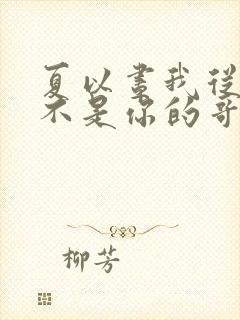 夏以晝我從
不是你的哥
柳芳